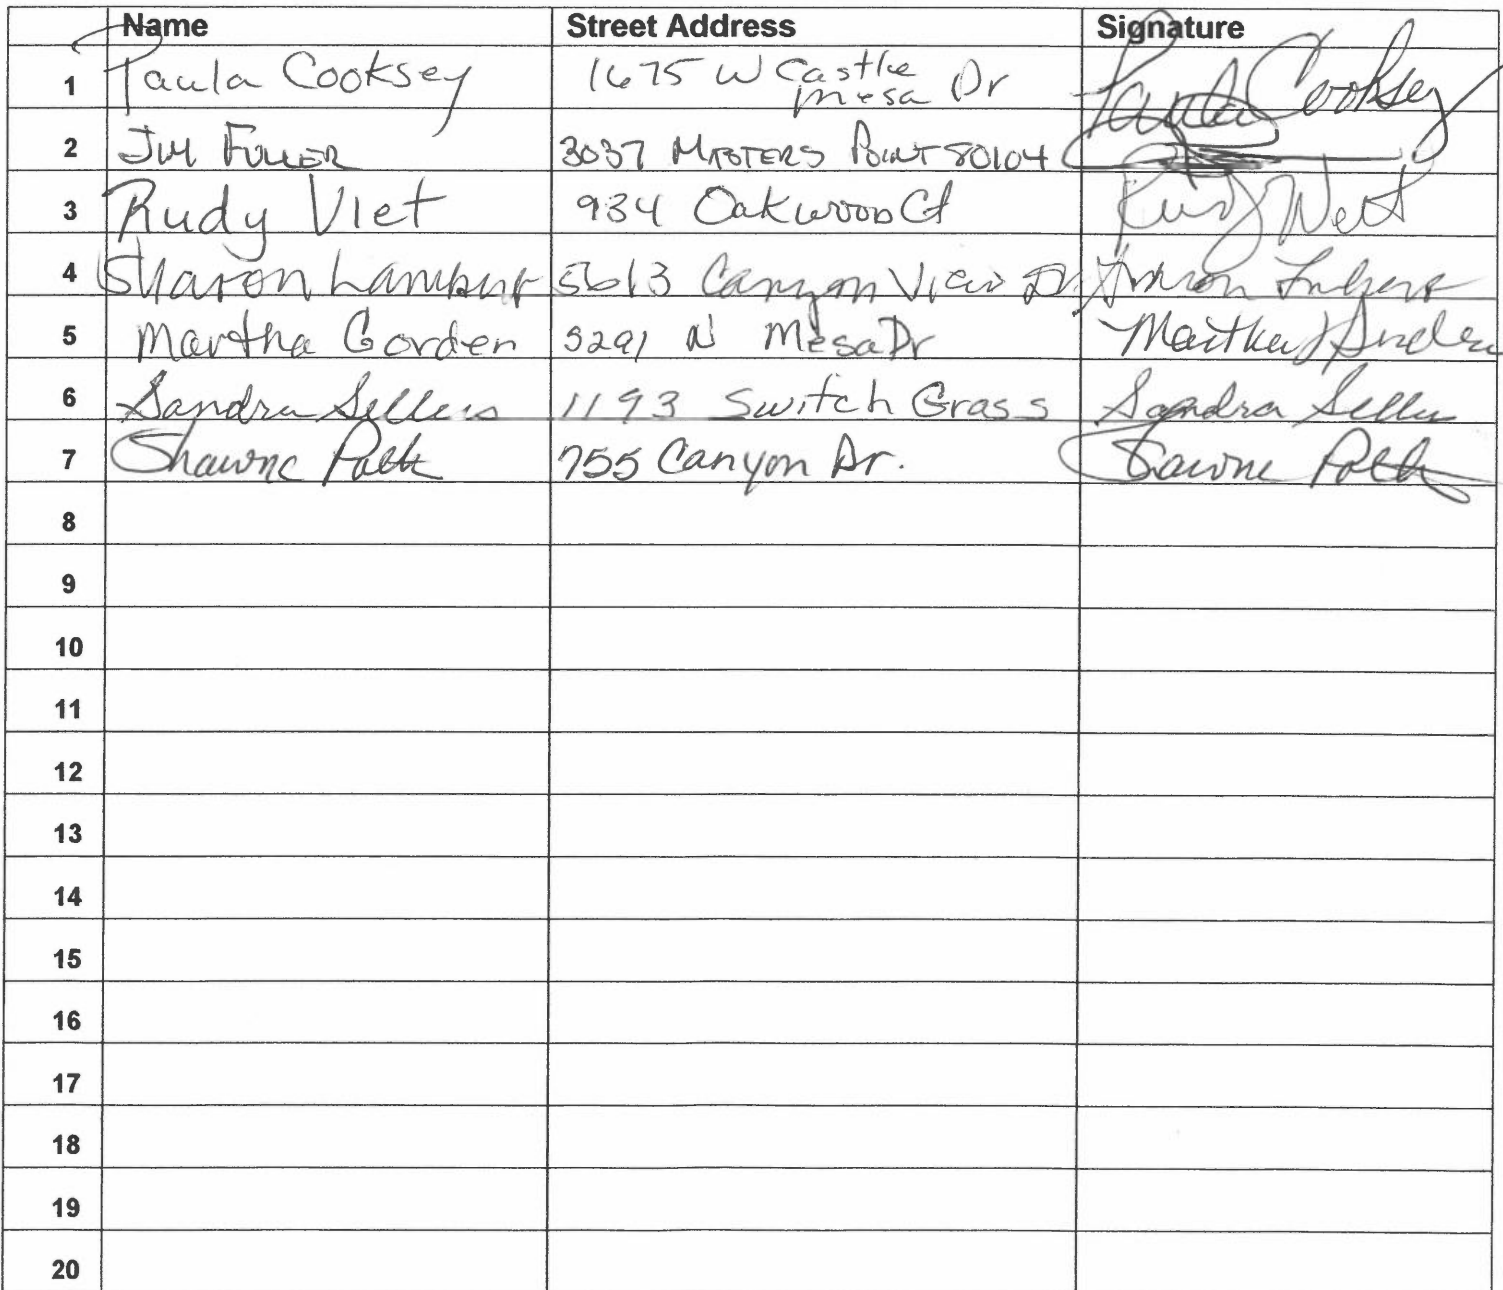 Name Street Address Signature
1 Paula Cooksey 1675 W Castle Mesa Dr Paula Cooksey
2 Jim Fuller 3037 Masters Point 80104
3 Rudy Viet 934 Oakwood Ct Rudy
4 Sharon Lambert 5613 Canyon View Dr Sharon Lambert
5 Martha Gorden 5291 N Mesa Dr Martha
6 Sandra Sellers 1193 Switch Grass Sandra Sellers
7 Shawne 755 Canyon Dr. Shawne
8
9
10
11
12
13
14
15
16
17
18
19
20